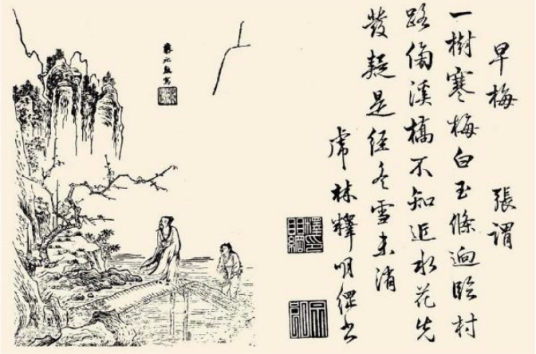 早梅 張謂
一樹寒梅白玉條逈臨村
路傍溪橋不知近水花先
發疑是經冬雪未消
虎林釋明綱書
蔡元勳寫